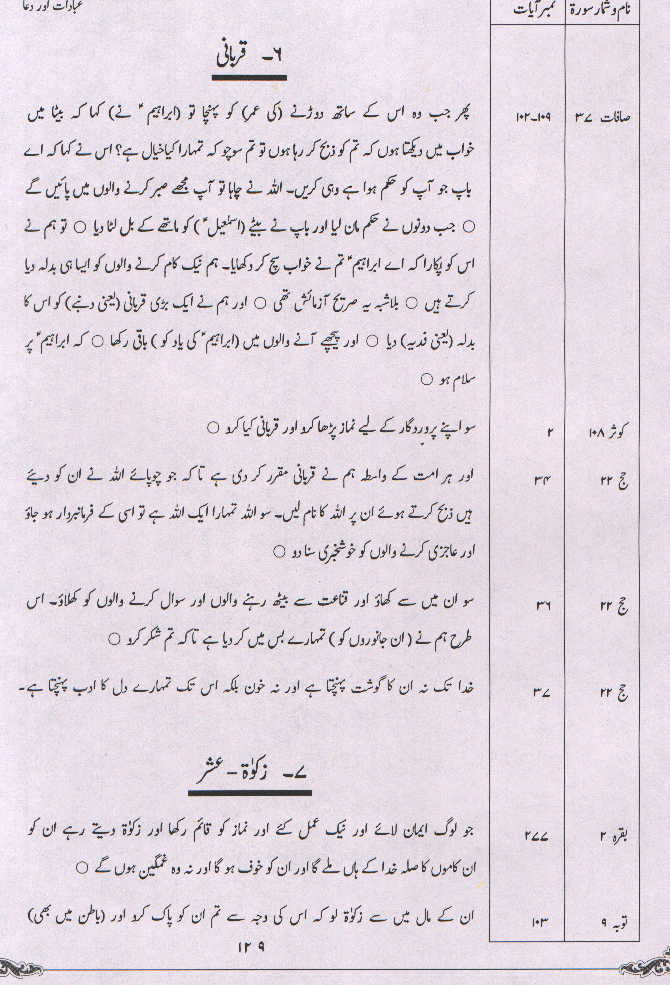 نام و شمار سورۃ نمبر آیات عبادات اور دعا
۶۔ قربانی
صافات ۳۷ ۱۰۲۔۱۰۹ پھر جب وہ اس کے ساتھ دوڑنے (کی عمر) کو پہنچا تو (ابراہیمؑ نے) کہا کہ بیٹا میں
خواب میں دیکھتا ہوں کہ تم کو ذبح کر رہا ہوں تو تم سوچو کہ تمہارا کیا خیال ہے؟ اس نے کہا کہ اے
باپ جو آپ کو حکم ہوا ہے وہی کریں۔ اللہ نے چاہا تو آپ مجھے صبر کرنے والوں میں پائیں گے
○ جب دونوں نے حکم مان لیا اور باپ نے بیٹے (اسمٰعیلؑ) کو ماتھے کے بل لٹا دیا ○ تو ہم نے
اس کو پکارا کہ اے ابراہیمؑ تم نے خواب سچ کر دکھایا۔ ہم نیک کام کرنے والوں کو ایسا ہی بدلہ دیا
کرتے ہیں ○ بلاشبہ یہ صریح آزمائش تھی ○ اور ہم نے ایک بڑی قربانی (یعنی دنبے) کو اس کا
بدلہ (یعنی فدیہ) دیا ○ اور پیچھے آنے والوں میں (ابراہیمؑ کی یاد کو) باقی رکھا ○ کہ ابراہیمؑ پر
سلام ہو ○
کوثر ۱۰۸ ۲ سو اپنے پروردگار کے لیے نماز پڑھا کرو اور قربانی کیا کرو ○
حج ۲۲ ۳۴ اور ہر امت کے واسطہ ہم نے قربانی مقرر کر دی ہے تاکہ جو چوپائے اللہ نے ان کو دیئے
ہیں ذبح کرتے ہوئے ان پر اللہ کا نام لیں۔ سو اللہ تمہارا ایک اللہ ہے تو اسی کے فرمانبردار ہو جاؤ
اور عاجزی کرنے والوں کو خوشخبری سنا دو ○
حج ۲۲ ۳۶ سو ان میں سے کھاؤ اور قناعت سے بیٹھ رہنے والوں اور سوال کرنے والوں کو کھلاؤ۔ اس
طرح ہم نے (ان جانوروں کو) تمہارے بس میں کر دیا ہے تاکہ تم شکر کرو ○
حج ۲۲ ۳۷ خدا تک نہ ان کا گوشت پہنچتا ہے اور نہ خون بلکہ اس تک تمہارے دل کا ادب پہنچتا ہے۔
۷۔ زکوٰۃ - عشر
بقرہ ۲ ۲۷۷ جو لوگ ایمان لائے اور نیک عمل کئے اور نماز کو قائم رکھا اور زکوٰۃ دیتے رہے ان کو
ان کاموں کا صلہ خدا کے ہاں ملے گا اور ان کو خوف ہو گا اور نہ وہ غمگین ہوں گے ○
توبہ ۹ ۱۰۳ ان کے مال میں سے زکوٰۃ لو کہ اس کی وجہ سے تم ان کو پاک کرو اور (باطن میں بھی)
۱۲۹